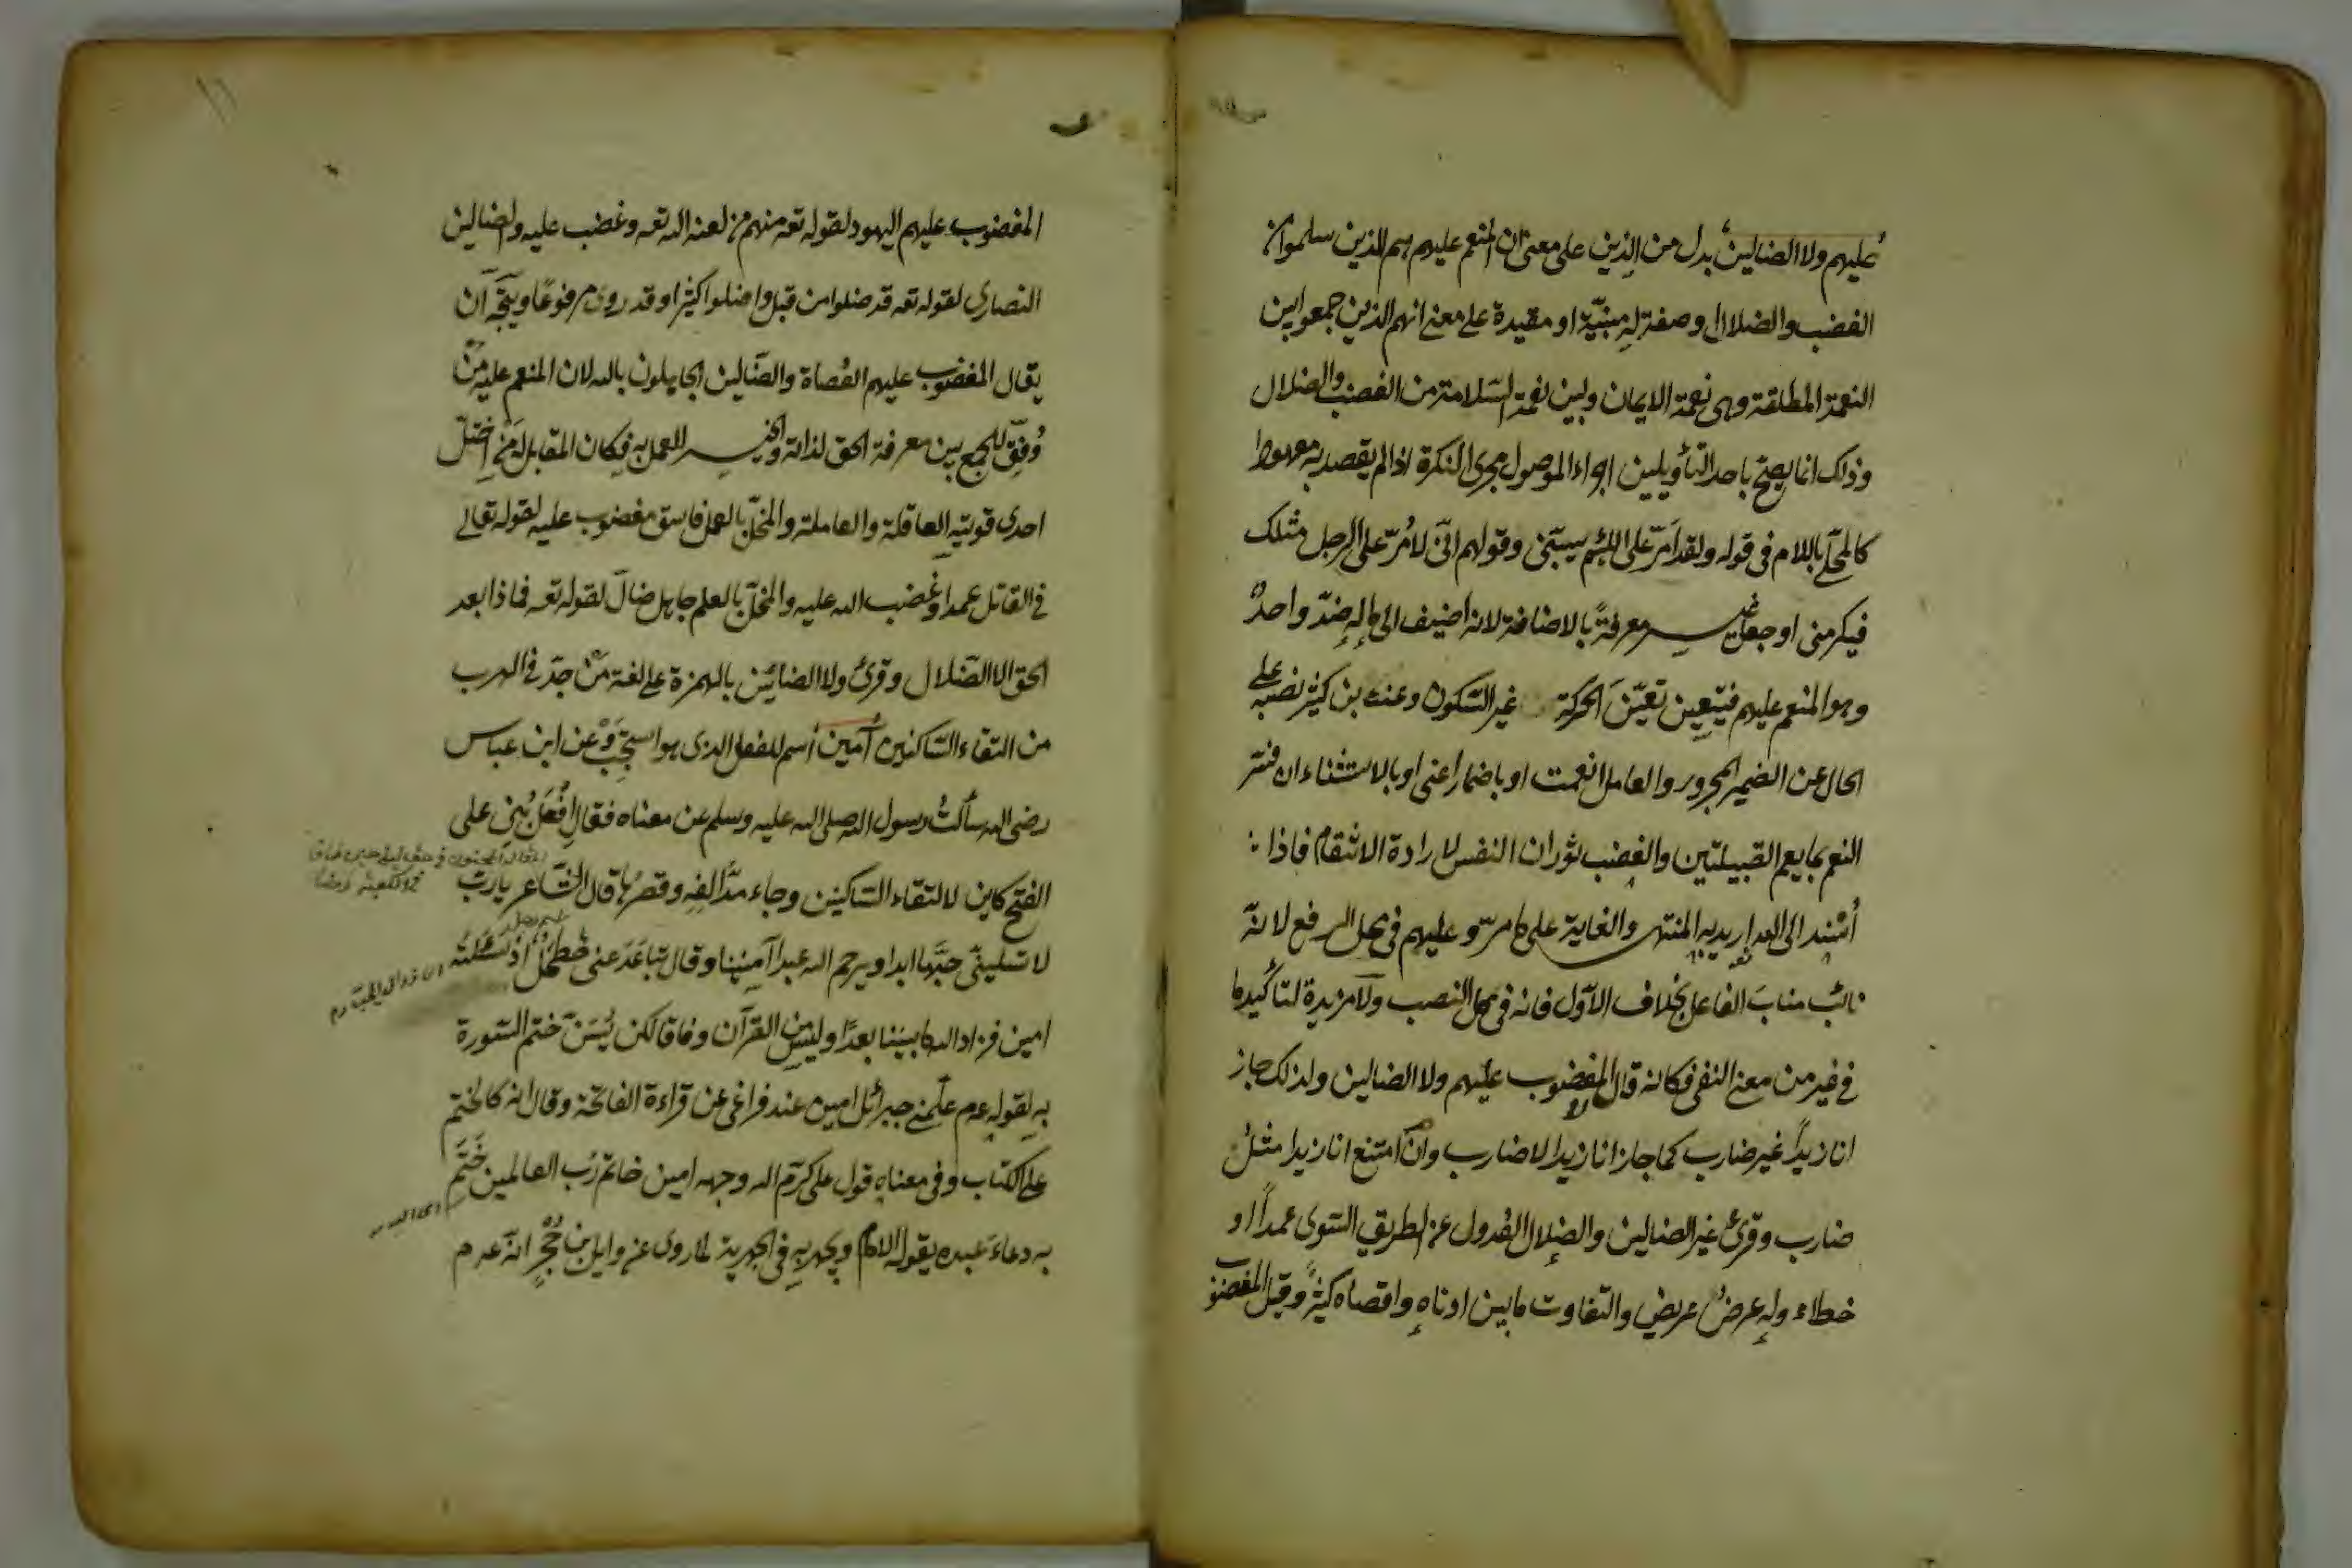 عليهم ولا الضالين بدل من الذين على معنى ان المنعم عليهم هم الذين سلموا من
الغضب والضلال او صفة له مبيّنة او مقيدة على معنى انهم الذين جمعوا بين
النعمة المطلقة وهى نعمة الايمان وبين نعمة السّلامة من الغضب والضلال
وذلك انما يصحّ باحد التأويلين اجراء الموصول مجرى النكرة اذا لم يقصد به معهودا
كالمحلّى باللام فى قوله ولقد امرّ على اللئيم يسبّنى وقولهم انّى لامُرّ على الرجل مثلك
فيكرمنى او جعل غير معرفةً بالاضافة لانه اضيف الى ما له ضدّ واحدٌ
وهو المنعم عليهم فيتعين تعيّن الحركة غير السّكون وعن بن كثير نصبه على
الحال عن الضمير المجرور والعامل انعمت او باضمار اعنى او بالاستثناء ان فسّر
النعم بما يعم القبيلتين والغضب ثوران النفس لارادة الانتقام فاذا
أُسْند الى الله اريد به المنتهى والغاية على ما مرّ و عليهم فى محل الرفع لانّه
نائبٌ منابَ الفاعل بخلاف الاوّل فانه فى محل النصب ولا مزيدة لتاكيد ما
فى غير من معنى النفى فكانه قال لا المغضوب عليهم ولا الضالين ولذلك جاز
انا زيداً غير ضارب كما جاز انا زيدا لا ضارب وان امتنع انا زيدا مثلُ
ضارب وقرئ غير الضالين والضلال العُدول عن الطريق السّوى عمداً او
خطاء وله عرضٌ عريض والتفاوت ما بين ادناهِ واقصاه كثيرٌ وقيل المغضوب
المغضوب عليهم اليهود لقوله تعه منهم من لعنه الله تعه وغضب عليه والضالين
النصارى لقوله تعه قد ضلوا من قبل واضلوا كثيرا وقد روى مرفوعًا ويتّجه آن
يقال المغضوب عليهم العُصاة والضّالين الجاهلون بالله لان المنعم عليه مَنْ
وُفّق للجمع بين معرفة الحق لذاته والخير للعمل به فكان المقابل له من اختلّ
احدى قوتيه العاقلة والعاملة والمخلّ بالعمل فاسق مغضوب عليه لقوله تعالى
فى القاتل عمدا وغَضب الله عليه والمخلّ بالعلم جاهل ضالّ لقوله تعه فماذا بعد
الحق الا الضّلال وقرئ ولا الضائين بالهمزة على لغة مَنْ جدّ فى الهرب
من التقاء السّاكنين أمين أسم للفعل الذى هو استجِبْ وَعن ابن عباس
رضى الله سألتُ رسول الله صلى الله عليه وسلم عن معناه فقال اِفْعَلْ بُنِىَ على
الفتح كاين لالتقاء السّاكنين وجاء مدُّ الفِهِ وقصرُها قال الشّاعر يا ربّ
لا تسلبنّى حبَّها ابدا ويرحم الله عبدا آمِيْنًا وقال تَباعَدَ عنى فُطحُلٌ اذ سَئَلْتُه
امين فزاد الله ما بيننا بعدًا وليس من القرآن وفاقا لكن يُسَنّ ختم السّورة
به لقوله عم علّمنى جبرائل امين عند فراغى عن قراءة الفاتحة وقال انه كالختم
على الكتاب وفى معناه قول على كرّم الله وجهه امين خاتم رَبّ العالمين خَتَمَ
به دعاءَ عبده يقوله الامام ويجهر به فى الجهرية لما روى عن وايل بن حُجْرٍ انّه عم